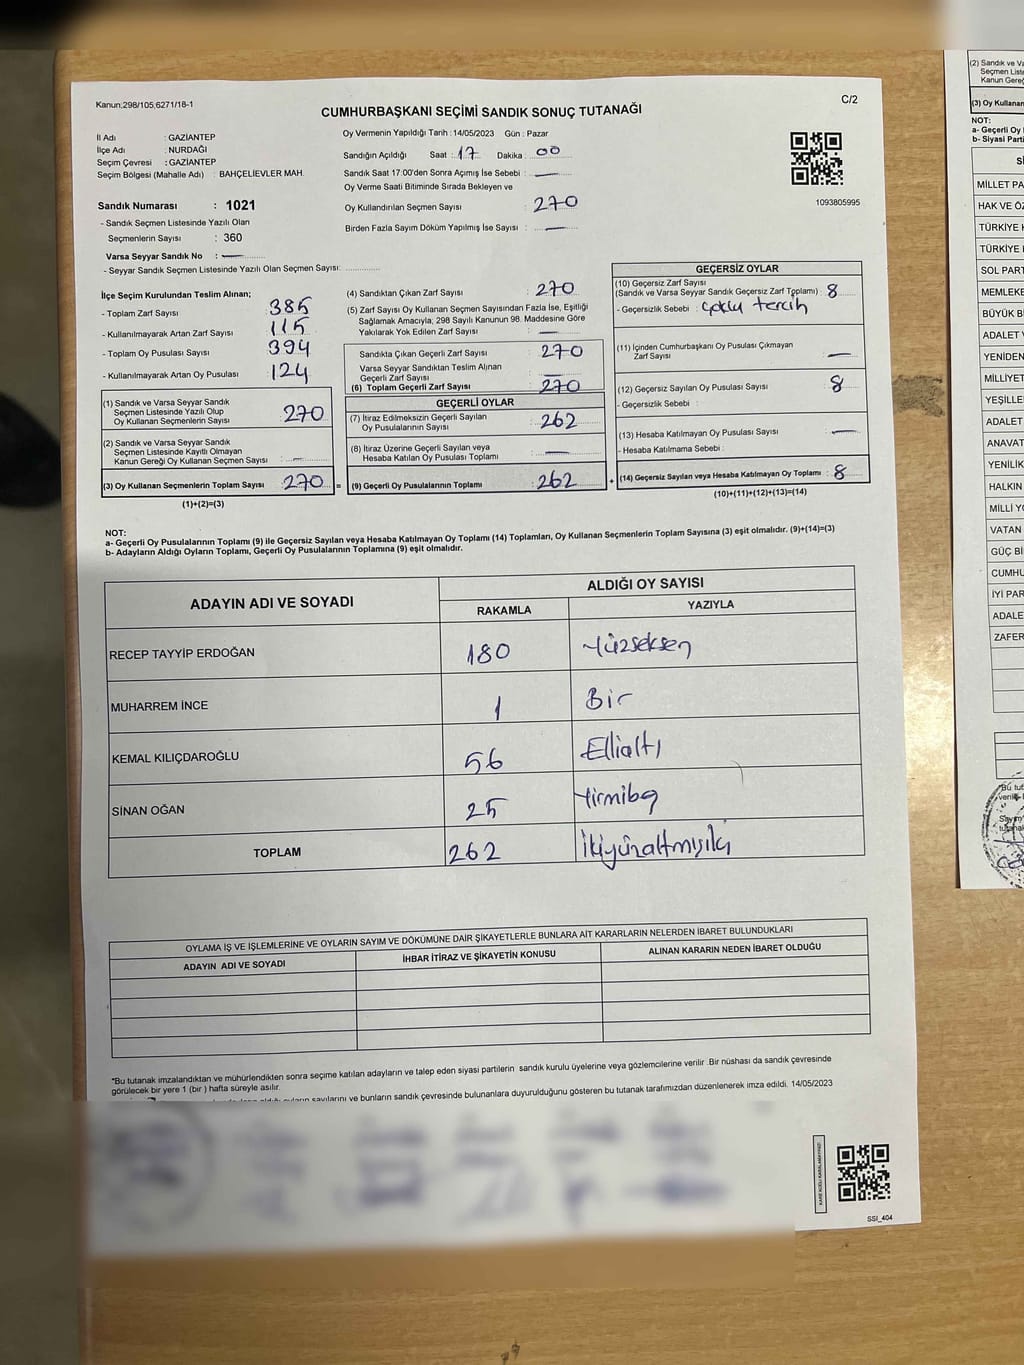 Kanun;298/105,6271/18-1
C/2
CUMHURBAŞKANI SEÇİMİ SANDIK SONUÇ TUTANAĞI
İl Adı : GAZİANTEP
İlçe Adı : NURDAĞI
Seçim Çevresi : GAZİANTEP
Seçim Bölgesi (Mahalle Adı) : BAHÇELİEVLER MAH.
Sandık Numarası : 1021
- Sandık Seçmen Listesinde Yazılı Olan
Seçmenlerin Sayısı : 360
Varsa Seyyar Sandık No : —
- Seyyar Sandık Seçmen Listesinde Yazılı Olan Seçmen Sayısı:
Oy Vermenin Yapıldığı Tarih : 14/05/2023 Gün : Pazar
Sandığın Açıldığı Saat : 17 Dakika : 00
Sandık Saat 17:00'den Sonra Açımış İse Sebebi : —
Oy Verme Saati Bitiminde Sırada Bekleyen ve
Oy Kullandırılan Seçmen Sayısı : 270
Birden Fazla Sayım Döküm Yapılmış İse Sayısı : —
1093805995
İlçe Seçim Kurulundan Teslim Alınan;
- Toplam Zarf Sayısı : 385
- Kullanılmayarak Artan Zarf Sayısı : 115
- Toplam Oy Pusulası Sayısı : 394
- Kullanılmayarak Artan Oy Pusulası : 124
(1) Sandık ve Varsa Seyyar Sandık
Seçmen Listesinde Yazılı Olup
Oy Kullanan Seçmenlerin Sayısı : 270
(2) Sandık ve Varsa Seyyar Sandık
Seçmen Listesinde Kayıtlı Olmayan
Kanun Gereği Oy Kullanan Seçmen Sayısı : —
(3) Oy Kullanan Seçmenlerin Toplam Sayısı : 270 =
(1)+(2)=(3)
(4) Sandıktan Çıkan Zarf Sayısı : 270
(5) Zarf Sayısı Oy Kullanan Seçmen Sayısından Fazla İse, Eşitliği
Sağlamak Amacıyla; 298 Sayılı Kanunun 98. Maddesine Göre
Yakılarak Yok Edilen Zarf Sayısı : —
Sandıkta Çıkan Geçerli Zarf Sayısı : 270
Varsa Seyyar Sandıktan Teslim Alınan
Geçerli Zarf Sayısı : —
(6) Toplam Geçerli Zarf Sayısı : 270
GEÇERLİ OYLAR
(7) İtiraz Edilmeksizin Geçerli Sayılan
Oy Pusulalarının Sayısı : 262
(8) İtiraz Üzerine Geçerli Sayılan veya
Hesaba Katılan Oy Pusulası Toplamı : —
(9) Geçerli Oy Pusulalarının Toplamı : 262 +
GEÇERSİZ OYLAR
(10) Geçersiz Zarf Sayısı
(Sandık ve Varsa Seyyar Sandık Geçersiz Zarf Toplamı) : 8
- Geçersizlik Sebebi : çoklu tercih
(11) İçinden Cumhurbaşkanı Oy Pusulası Çıkmayan
Zarf Sayısı : —
(12) Geçersiz Sayılan Oy Pusulası Sayısı : 8
- Geçersizlik Sebebi :
(13) Hesaba Katılmayan Oy Pusulası Sayısı : —
- Hesaba Katılmama Sebebi :
(14) Geçersiz Sayılan veya Hesaba Katılmayan Oy Toplamı : 8
(10)+(11)+(12)+(13)=(14)
NOT:
a- Geçerli Oy Pusulalarının Toplamı (9) ile Geçersiz Sayılan veya Hesaba Katılmayan Oy Toplamı (14) Toplamları, Oy Kullanan Seçmenlerin Toplam Sayısına (3) eşit olmalıdır. (9)+(14)=(3)
b- Adayların Aldığı Oyların Toplamı, Geçerli Oy Pusulalarının Toplamına (9) eşit olmalıdır.
ADAYIN ADI VE SOYADI
ALDIĞI OY SAYISI
RAKAMLA YAZIYLA
RECEP TAYYİP ERDOĞAN 180 Yüzseksen
MUHARREM İNCE 1 Bir
KEMAL KILIÇDAROĞLU 56 Ellialtı
SİNAN OĞAN 25 Yirmibeş
TOPLAM 262 İkiyüzaltmışiki
OYLAMA İŞ VE İŞLEMLERİNE VE OYLARIN SAYIM VE DÖKÜMÜNE DAİR ŞİKAYETLERLE BUNLARA AİT KARARLARIN NELERDEN İBARET BULUNDUKLARI
ADAYIN ADI VE SOYADI İHBAR İTİRAZ VE ŞİKAYETİN KONUSU ALINAN KARARIN NEDEN İBARET OLDUĞU
*Bu tutanak imzalandıktan ve mühürlendikten sonra seçime katılan adayların ve talep eden siyasi partilerin sandık kurulu üyelerine veya gözlemcilerine verilir .Bir nüshası da sandık çevresinde
görülecek bir yere 1 (bir ) hafta süreyle asılır.
sayılarını ve bunların sandık çevresinde bulunanlara duyurulduğunu gösteren bu tutanak tarafımızdan düzenlenerek imza edildi. 14/05/2023
SSI_404
(2) Sandık ve Va
Seçmen Liste
Kanun Gereğ
(3) Oy Kullanan
NOT:
a- Geçerli Oy
b- Siyasi Parti
Sİ
MİLLET PA
HAK VE ÖZ
TÜRKİYE K
TÜRKİYE
SOL PART
MEMLEKE
BÜYÜK Bİ
ADALET V
YENİDEN
MİLLİYET
YEŞİLLE
ADALET
ANAVAT
YENİLİK
HALKIN
MİLLİ YO
VATAN
GÜÇ Bİ
CUMHU
İYİ PAR
ADALE
ZAFER